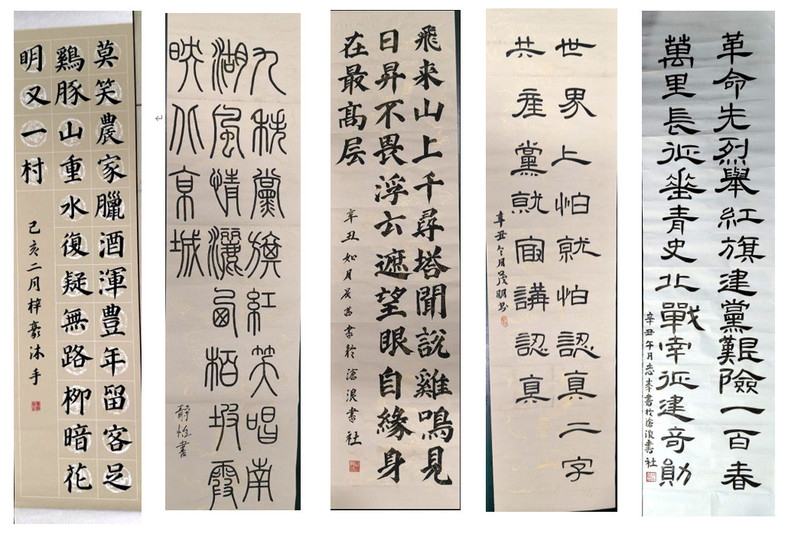 莫笑農家臘酒渾豊年留客足
鷄豚山重水復疑無路柳暗花
明又一村
己亥二月梓豪沐手
九秩黨旗紅笑唱南
湖風情灑西栢坡霞
映北京城
静怡書
飛来山上千尋塔聞説雞鳴見
日昇不畏浮云遮望眼自緣身
在最高层
辛丑如月書於滄浪書社
世界上怕就怕認真二字
共産黨就最講認真
辛丑月茂明書
革命先烈舉紅旗建黨艱險一百春
萬里長征垂青史北戰南征建奇勛
辛丑午月志書於滄浪書社